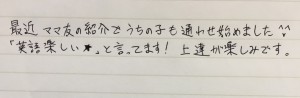 最近 ママ友の紹介でうちの子も通わせ始めました^^
「英語楽しい★」と言ってます! 上達が楽しみです。